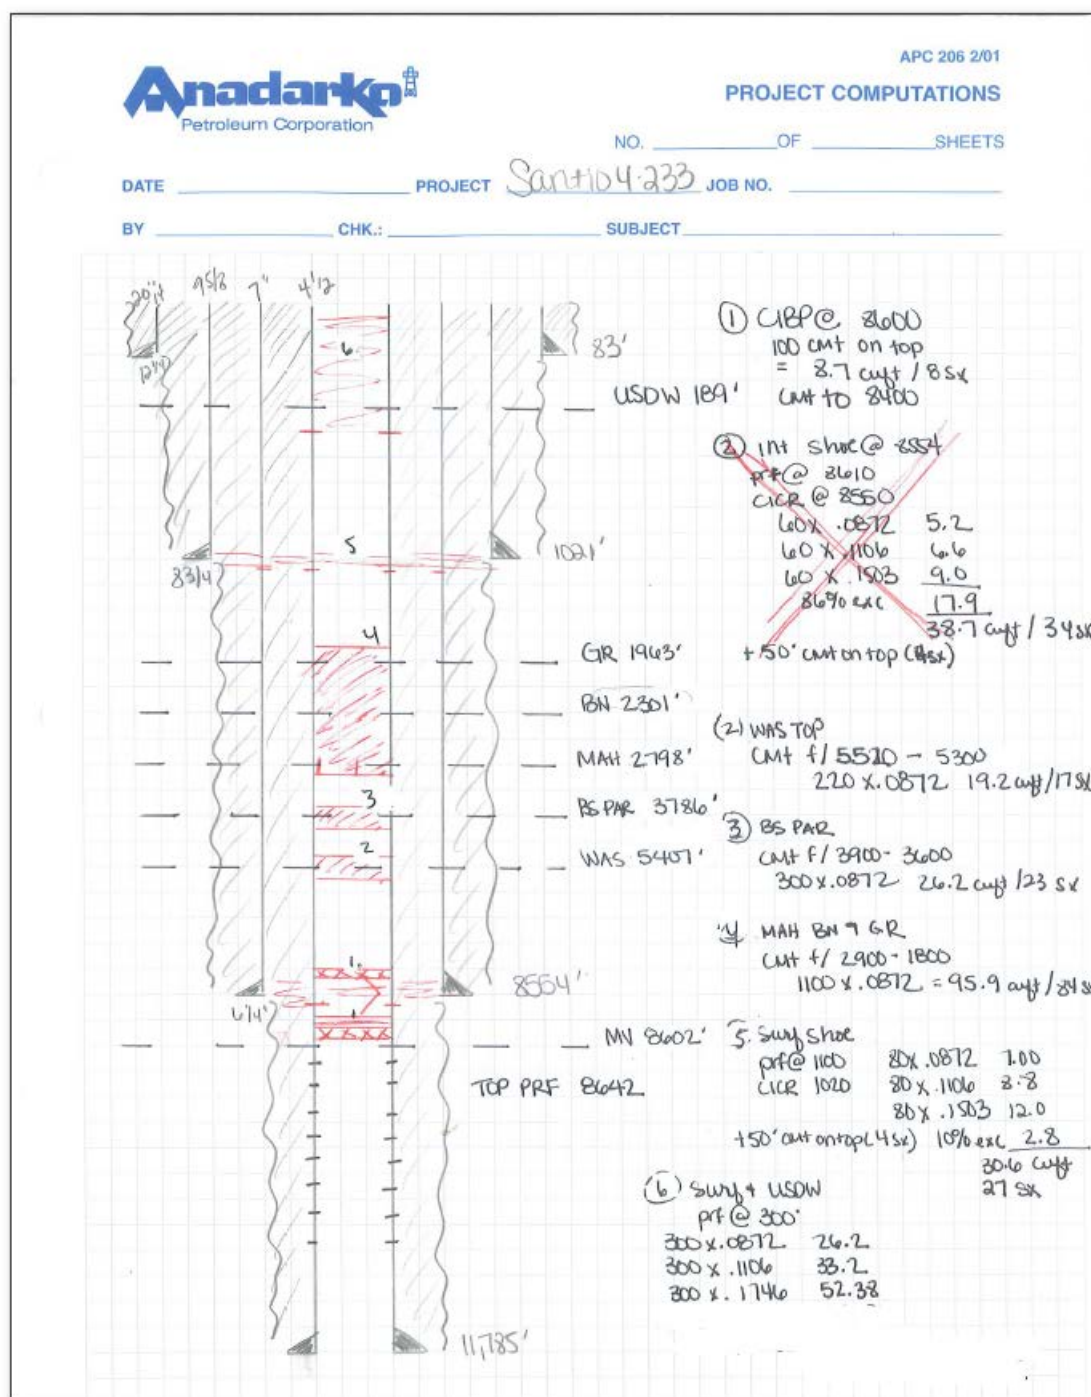 APC 206 2/01
Anadarko
Petroleum Corporation
PROJECT COMPUTATIONS
NO. OF SHEETS
DATE PROJECT Santio 4-233 JOB NO.
BY CHK.: SUBJECT
20" 9 5/8 7" 4 1/2
6.
83'
12 1/4
USDW 189'
5
1021'
8 3/4
4
GR 1963'
BN 2301'
MAH 2798'
3
BS PAR 3786'
2
WAS 5407'
1.
8554'
6 1/4"
MV 8602'
TOP PRF 8642
11,785'
① CIBP @ 8600
100 cmt on top
= 8.7 cuft / 8 sx
cmt to 8400
② int shoe @ 8554
prf @ 8610
CICR @ 8550
60 x .0872 5.2
60 x .1106 6.6
60 x .1503 9.0
86% exc 17.9
38.7 cuft / 34 sx
+ 50' cmt on top (sx)
(2) WAS TOP
cmt f/ 5520 - 5300
220 x .0872 19.2 cuft/17 sx
③ BS PAR
cmt f/ 3900 - 3600
300 x .0872 26.2 cuft /23 sx
4 MAH BN GR
cmt f/ 2900 - 1800
1100 x .0872 = 95.9 cuft / 84 sx
5. Surf shoe
prf @ 1100 80x .0872 7.00
CICR 1020 80 x .1106 8.8
80 x .1503 12.0
+50' cmt on top (4 sx) 10% exc 2.8
30.6 cuft
27 sx
⑥ Surf + USDW
prf @ 300'
300 x .0872 26.2
300 x .1106 33.2
300 x .1746 52.38